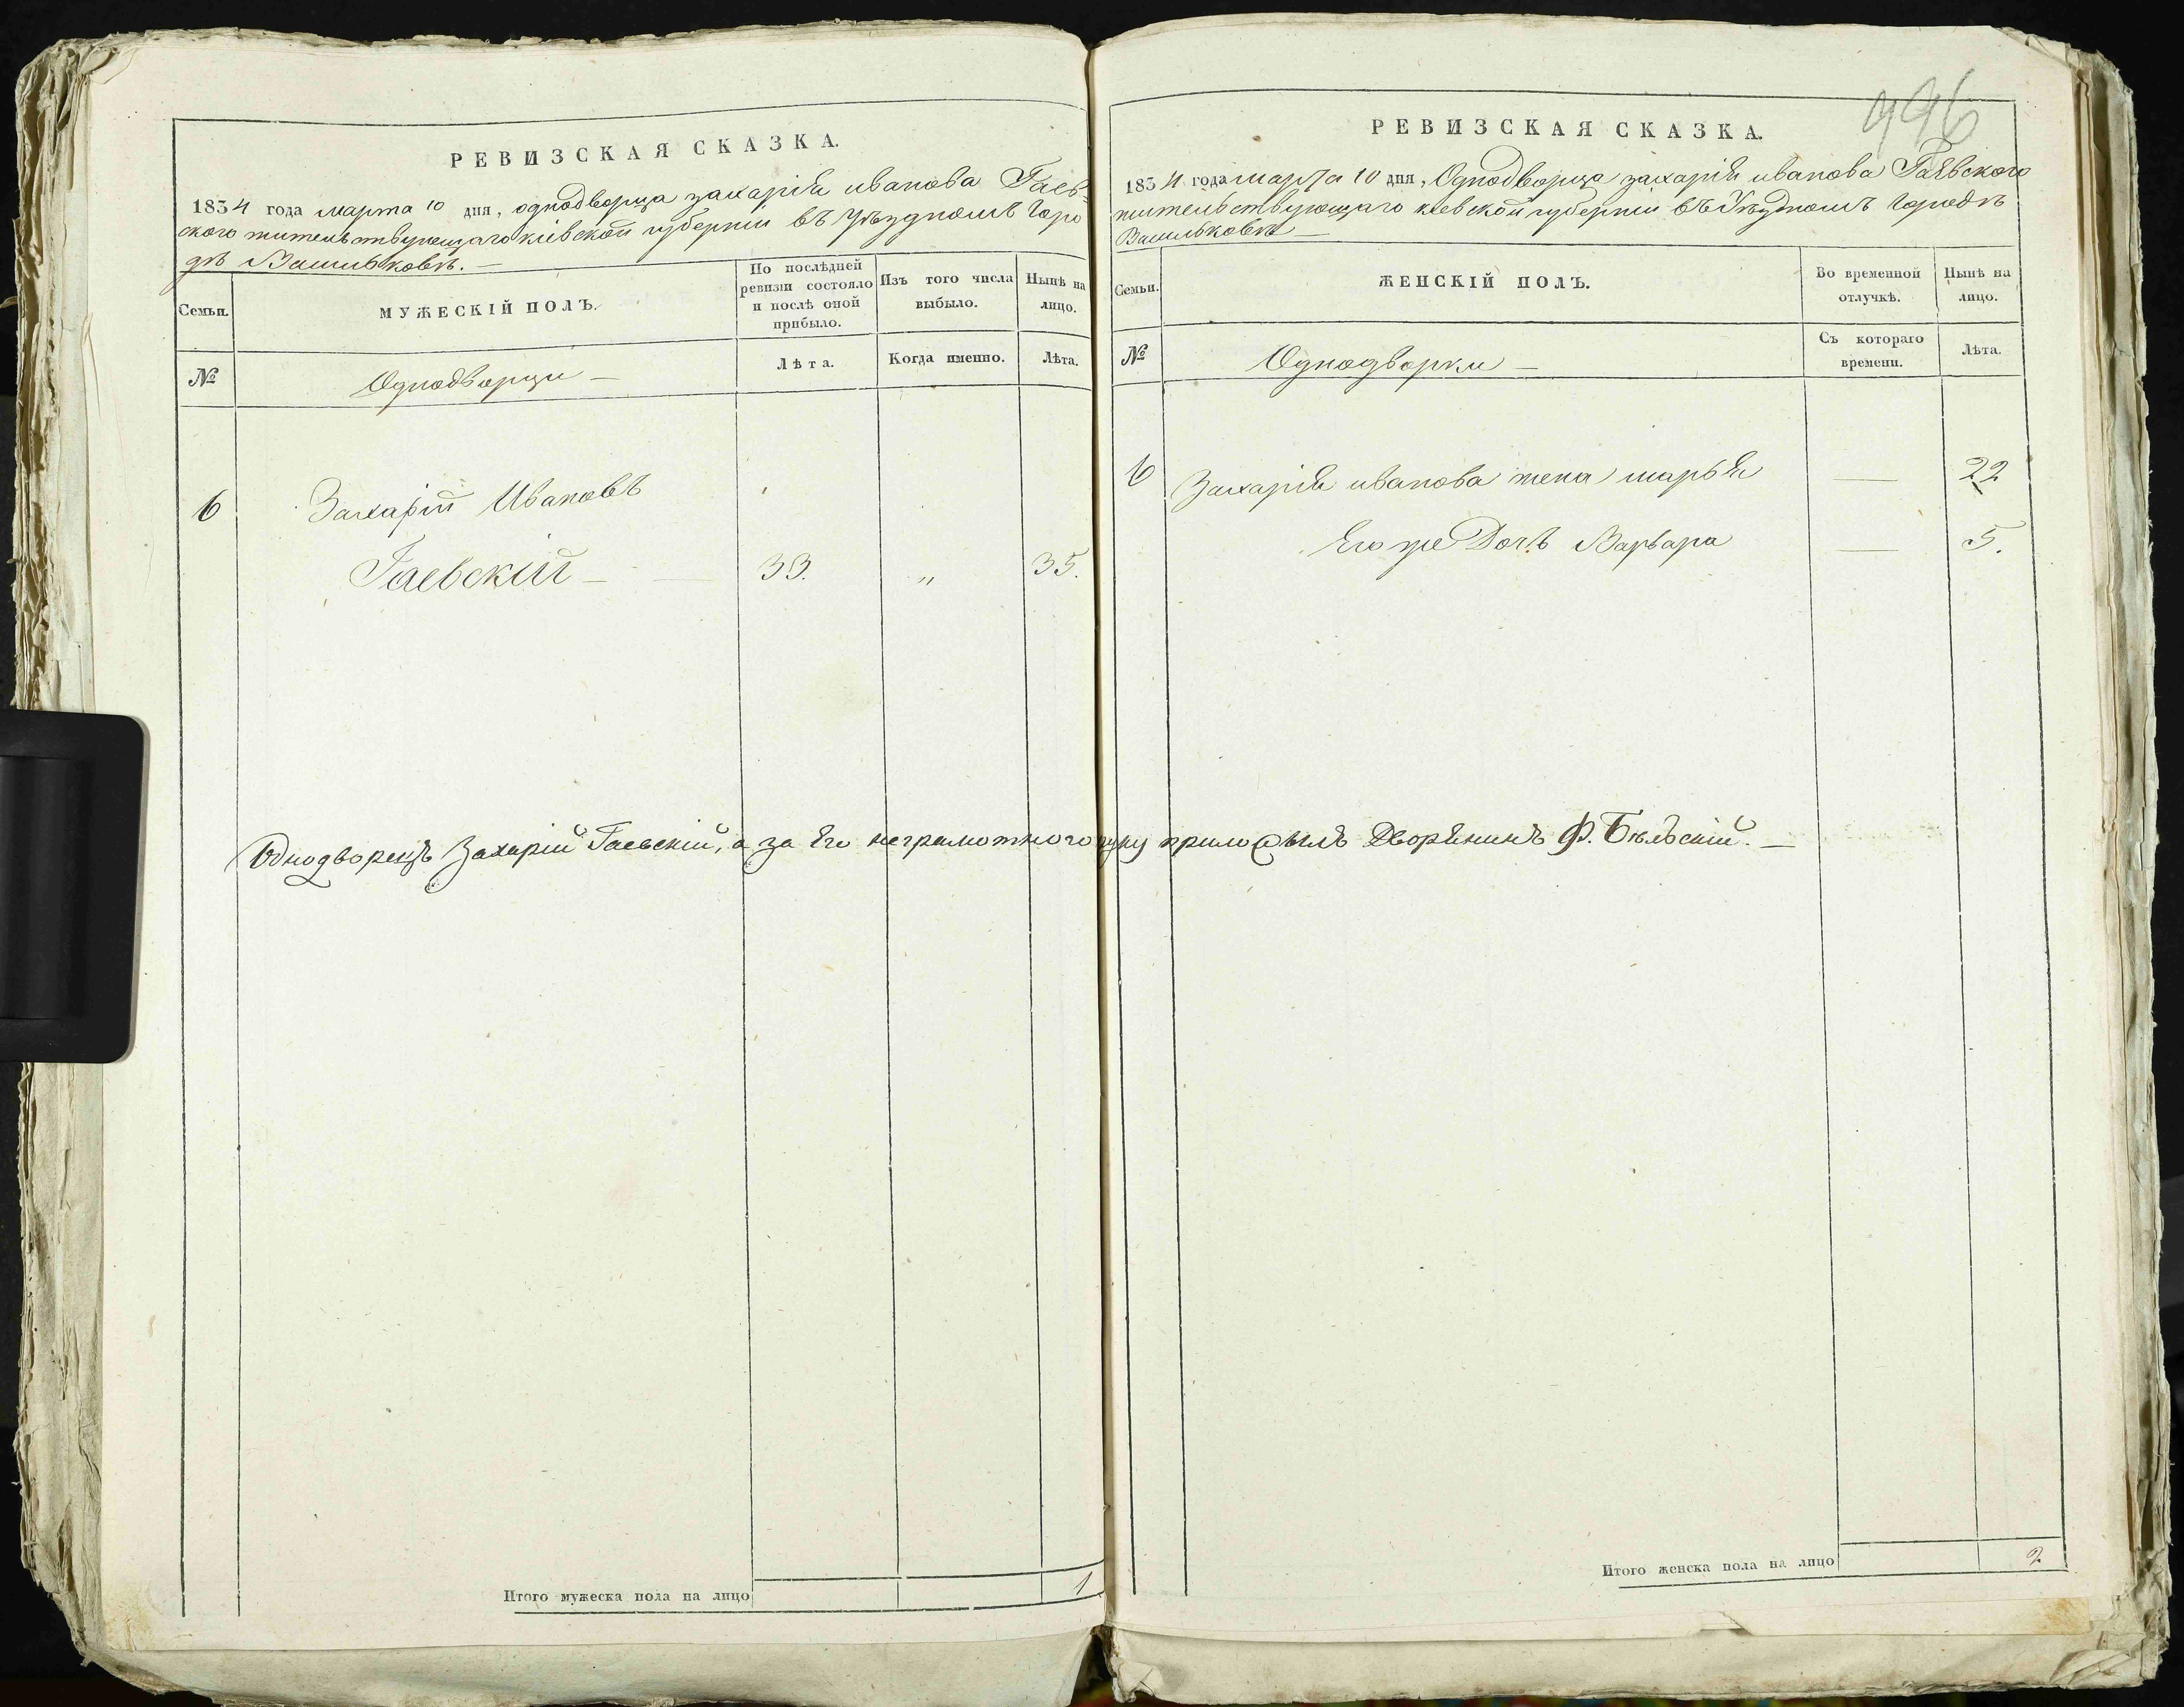 РЕВИЗСКАЯ СКАЗКА.
1834 года марта 10 дня, однодворца захарія иванова Гаев-
ского жительствующаго кіевской губерніи въ уѣздномъ Горо
дѣ Васильковѣ. —
Семьи.
МУЖЕСКІЙ ПОЛЪ.
По послѣдней ревизіи состояло и послѣ оной прибыло.
Изъ того числа выбыло.
Нынѣ на лицо.
№
Однодворцы —
Лѣта.
Когда именно.
Лѣта.
6 Захарій Ивановъ
Гаевскій — 33. „ 35.
Однодворецъ Захарій Гаевскій, а за Его неграмотного руку приложылъ Дворянинъ Ф. Бѣльскій. —
Итого мужеска пола на лицо 1
496
РЕВИЗСКАЯ СКАЗКА.
1834 года марта 10 дня, Однодворца захарія иванова Гаявского
жительствующаго кіевской губерніи въ Уѣздномъ Городѣ
Васильковѣ —
Семьи.
ЖЕНСКІЙ ПОЛЪ.
Во временной отлучкѣ.
Нынѣ на лицо.
№
Однодворки —
Съ котораго времени.
Лѣта.
6 Захарія иванова жена марья — 22
Его же Дочь Варвара — 5.
Итого женска пола на лицо 2